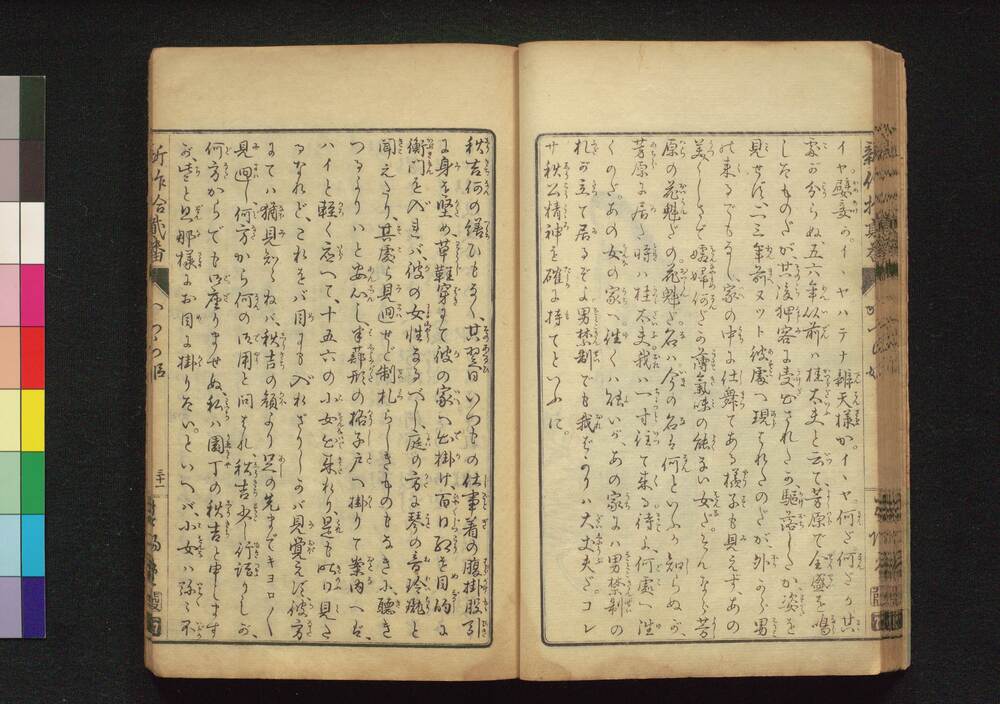 イヤ嬖妾かイ、ヤハテナ辨天様か。イ、ヤ何だ何だか其
家が分らぬ五六年以前ハ桂太夫と云て芳原で全盛を鳴
しあものだが、其後狎客に受出されたか駆落したか、姿を
見せず、二三年前ヌット彼處へ現はれたのだが外から男
の来るでもなし家の中に仕舞てある様子も見えずあの
美くしさで嬬婦何どゝハ薄氣味の能ない女だ。そんなら芳
原の花魁だの。花魁だ。名ハ今の名ハ何といふか知らぬが、
芳原に居た時ハ桂太夫我ハ一寸往て来る。待よ、何處へ往
くのだ。あの女の家へ往くハ能いが、あの家にハ男禁制の
札が立て居るぞよ男禁制でも我ばかりハ大丈夫だ。コレ
サ秋公精神を確に持てといふに。
秋吉何の繕ひもなく、其翌日いつもの仕事着の腹掛股引
に身を堅め、草鞋穿にて彼の家へ出掛け、百日紅を目的に
衡門を入れバ、彼の女性なるべし、庭の方に琴の音玲瓏と
聞えたり、其處ら見廻せど制札らしきものもなきに、聴き
つるよりハと安心し半蔀形の格子戸へ掛りて案内へば、
ハイと軽く應へて、十五六の小女出来れり、是も昨日見た
るなれど、これをバ目にも入れざりしかバ見覚えず、彼方
にてハ猶見知らねバ、秋吉の顔より足の先までキヨロ〳〵
見廻し、何方から何の御用と問はれ、秋吉少し行詰りしが、
何方からでも御座りませぬ、私ハ園丁の秋吉と申します
が、些と旦那様にお目に掛りたい。といへバ小女ハ弥々不